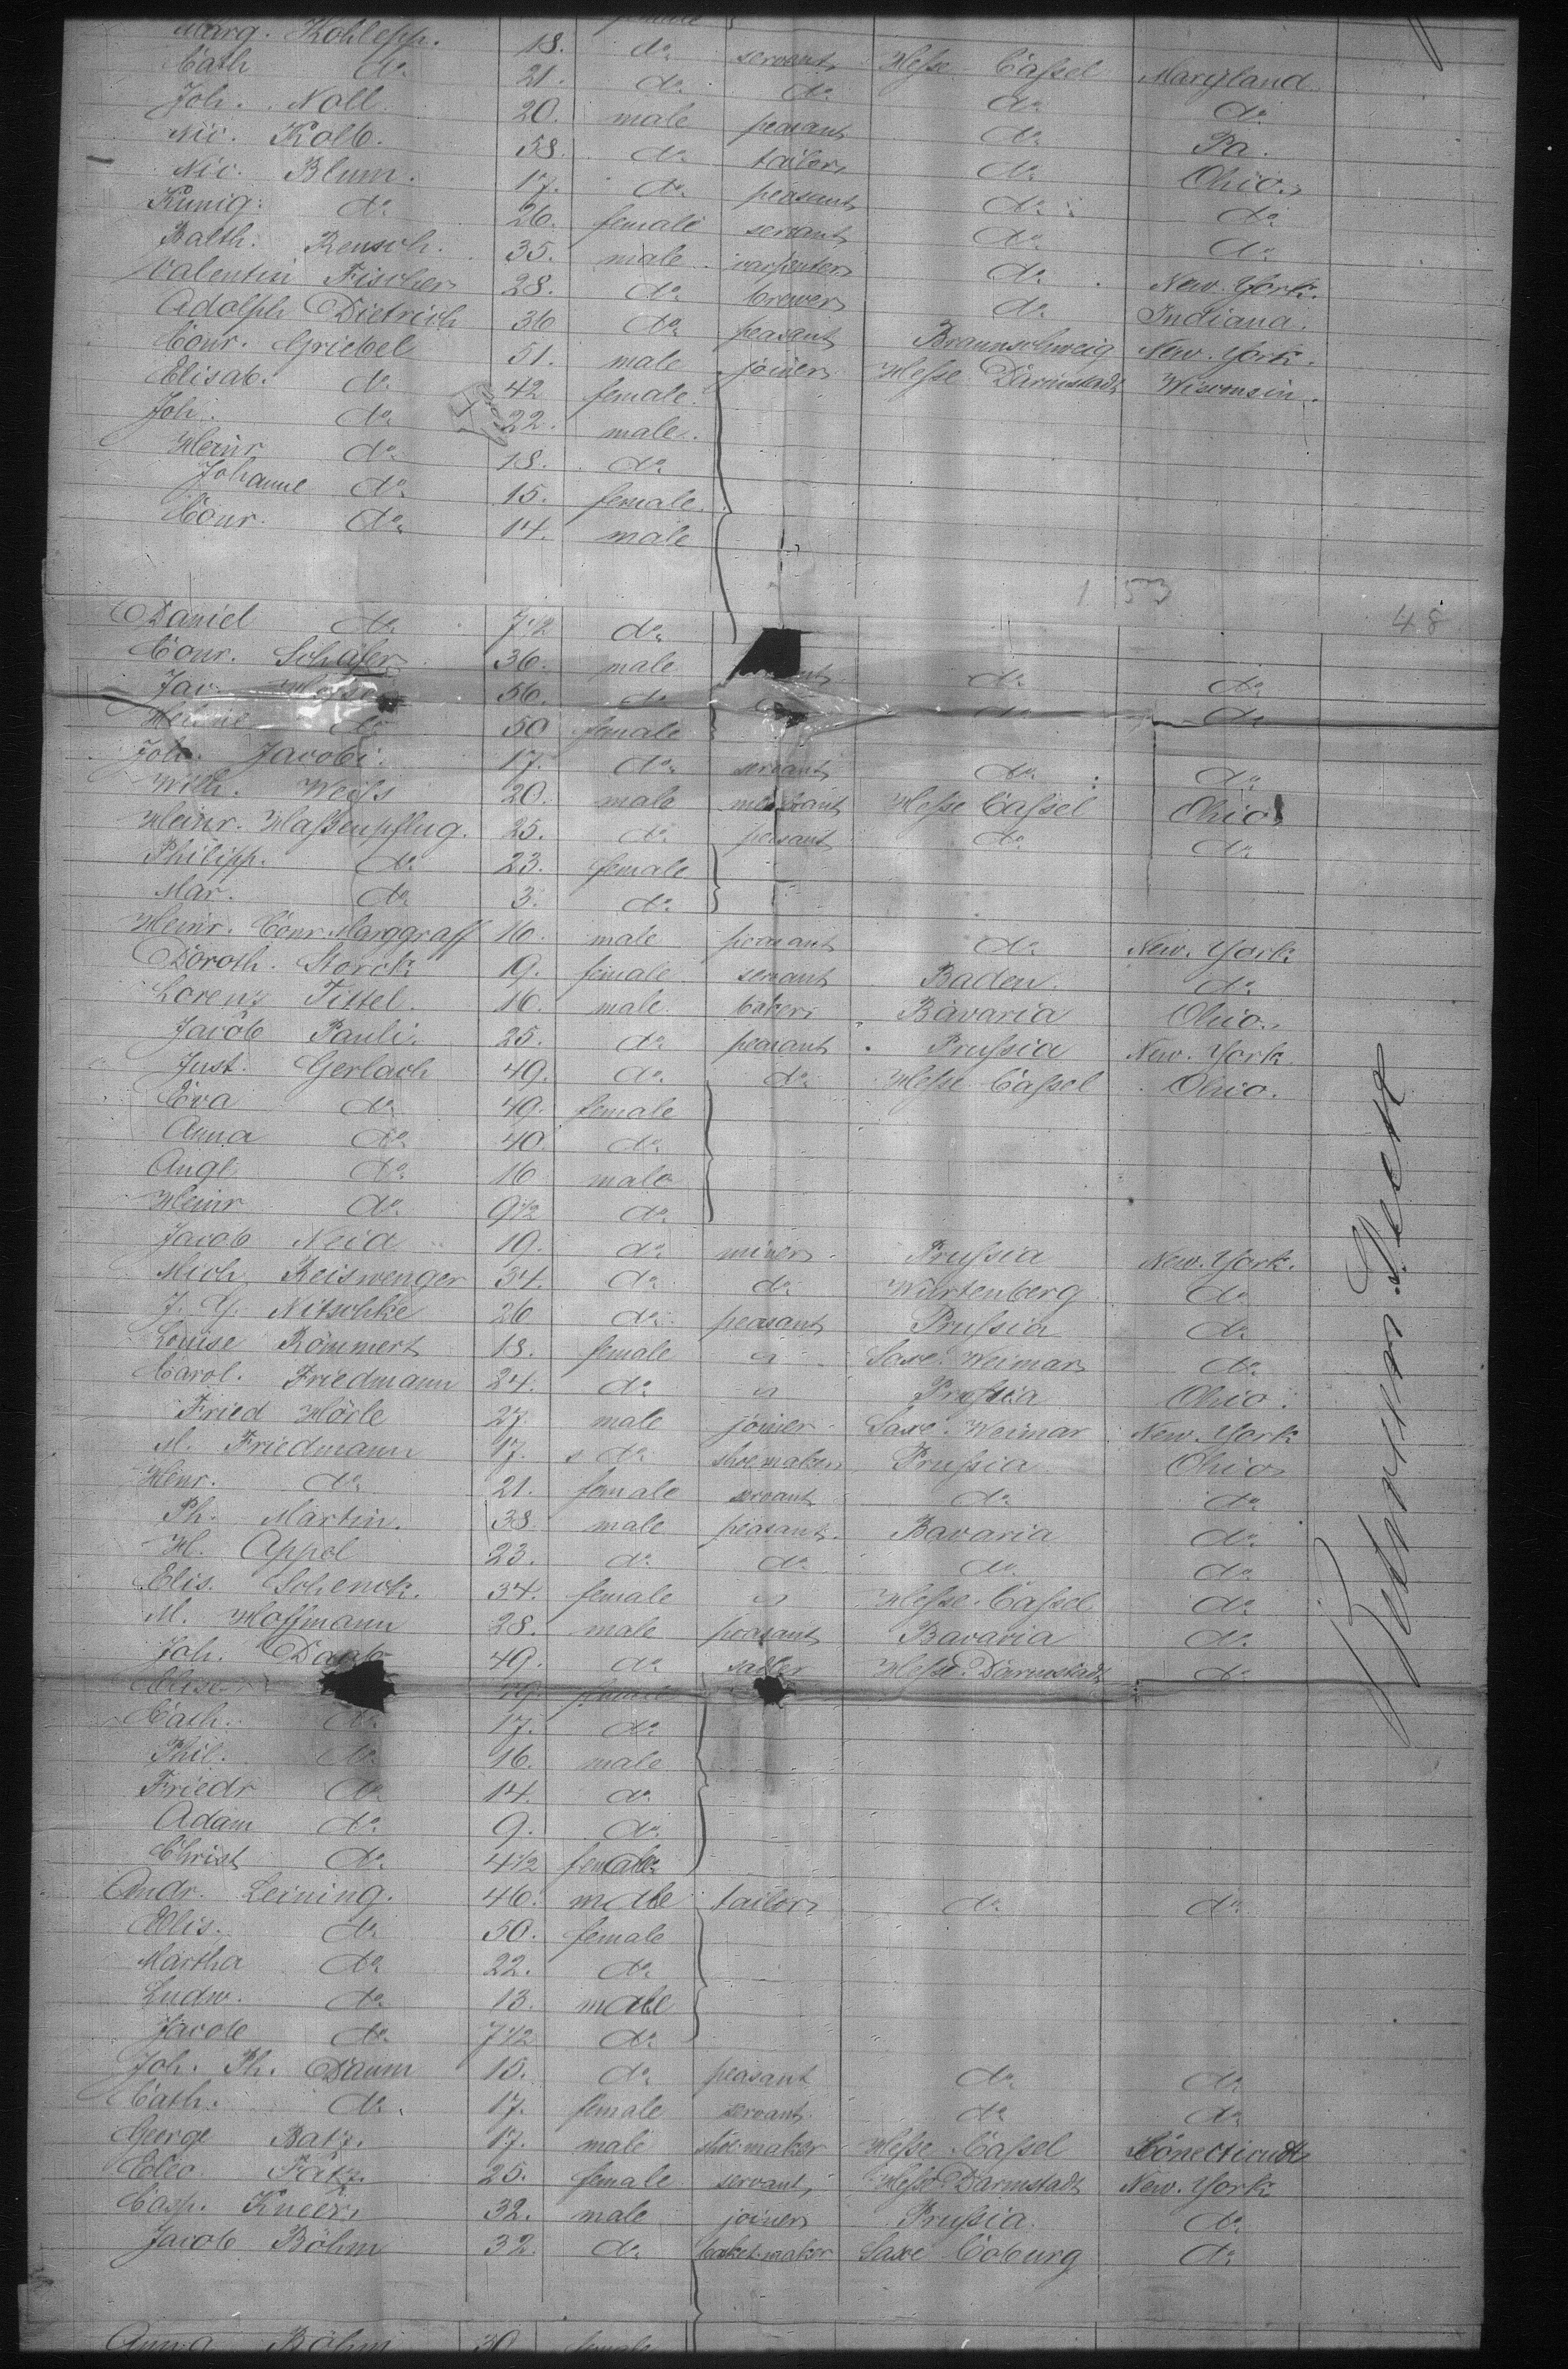 Marg. Kohlepp. 18. do servant Hesse Cassel Maryland
Cath do 21. do do do do
Joh. Noll 20. male peasant do Pa.
Nic. Kolb. 58. do tailor do Ohio
Nic. Blum. 17. do peasant do do
Kunig: do 26. female servant do do
Balth. Rensch. 35. male carpenter do New. York.
Valentin Fischer 28. do brewer do Indiana.
Adolph Dietrich 36 do peasant Braunschweig New. York.
Conr. Griebel 51. male joiner Hesse Darmstadt Wisconsin.
Elisab. do 42 female.
Joh. do 22. male.
Heinr do 18. do
Johanne do 15. female.
Conr. do 14. male
1 53
48
Daniel do 7 1/2 do
Conr. Schäfer 36. male do do
Jac. 56. do do do
do 50 female
Joh. Jacobi. 17. do servant do do
Wilh. Weifs 20. male merchant Hesse Cassel Ohio
Heinr. Hassenpflug. 25. do peasant do do
Philipp. do 23. female
Mar. do 3. do
Heinr. Conr. Marggraff 16. male peasant do New. York
Doroth. Storck 19. female servant Baden. do
Lorenz Tittel. 16. male baker Bavaria Ohio.
Jacob Pauli. 25. do peasant Prussia New. York
Just. Gerlach 49. do do Hesse Cassel Ohio.
Eva do 40. female
Anna do 40 do
Augt do 16 male
Heinr do 9 1/2 do
Jacob Neid 19. do miner Prussia New. York.
Mich. Reiswenger 34. do do Würtenberg do
J. G. Nitschke 26 do peasant Prussia do
Louise Römmert 18. female " Saxe. Weimar do
Carol. Friedmann 24. do " Prussia Ohio.
Fried Hörle 27. male joiner Saxe. Weimar New. York
M. Friedmann 17. do shoemaker Prussia Ohio
Henr. do 21. female servant do do
Ph. Martin. 38. male peasant. Bavaria do
H. Appel 23. do do do do
Elis. Schenck. 34. female " Hesse. Cassel do
M. Hoffmann 28. male peasant Bavaria do
Joh. Daab 49. do sadler Hesse. Darmstadt do
female
Cath. do 17. do
Phil. do 16. male
Friedr do 14. do
Adam do 9. do
Christ do 4 1/2 female
Andr. Leining. 46. male tailor do do
Elis. do 50. female
Martha do 22. do
Ludw. do 13. male
Jacob do 7 1/2 do
Joh. Ph. Daum 15. do peasant do do
Cath. do 17. female servant do do
George Batz. 17. male shoemaker Hesse Cassel Conecticudt
Fatz. 25. female servant Hesse Darmstadt New. York
Casp. Kneer. 32. male joiner Prussia. do
Jacob Böhm 32. do basket maker Saxe Coburg do
Anna Böhm 30 female